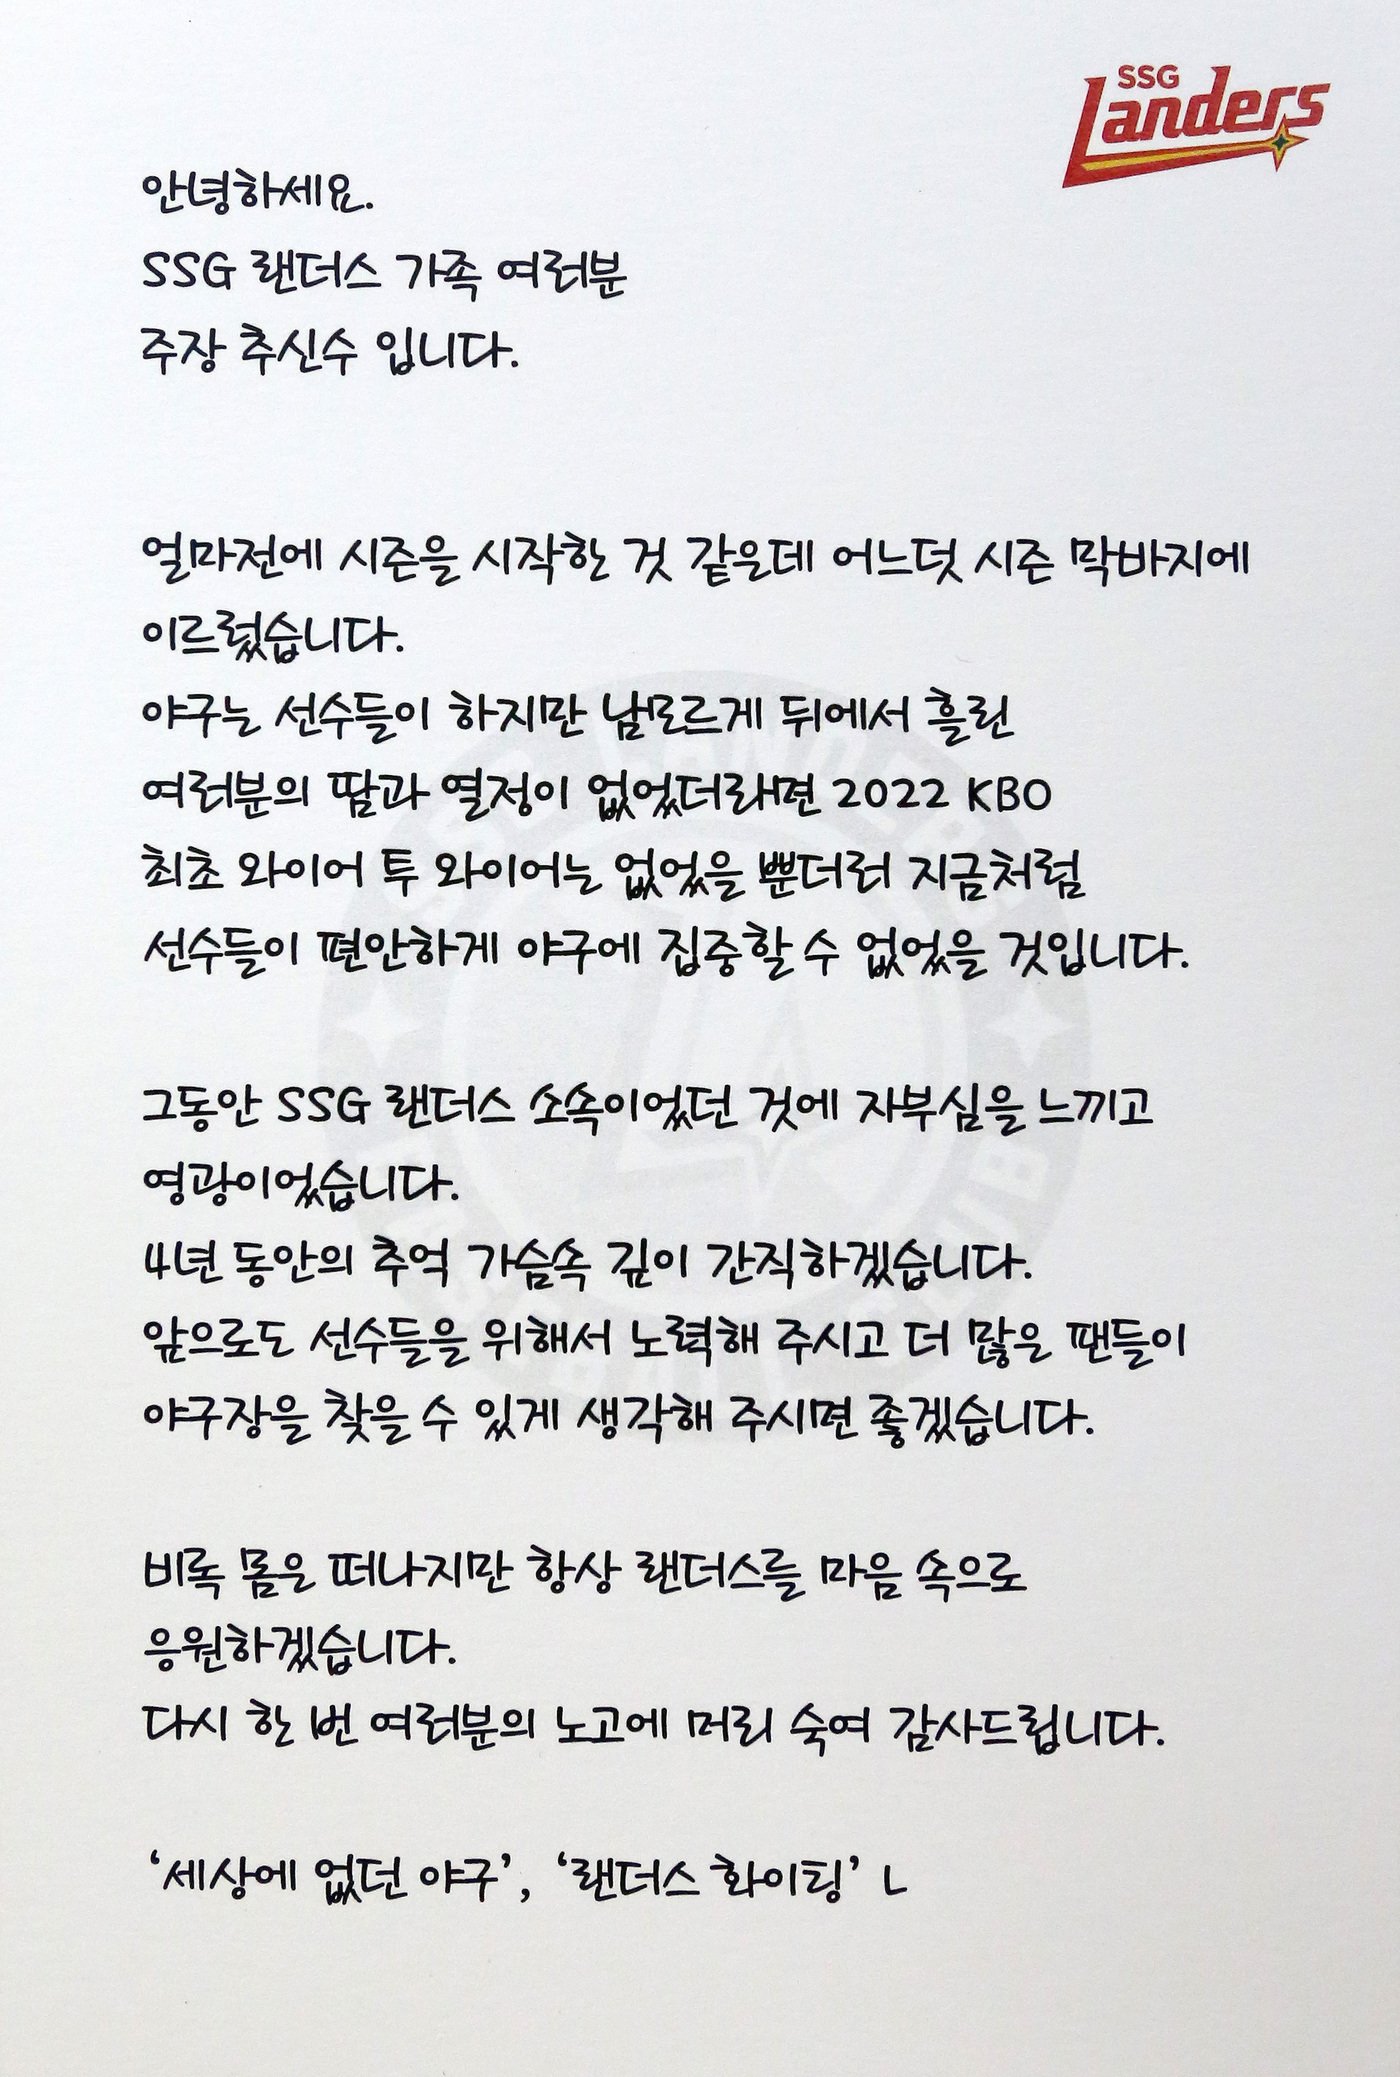 SSG
Landers
안녕하세요.
SSG 랜더스 가족 여러분
주장 추신수 입니다.
얼마전에 시즌을 시작한 것 같은데 어느덧 시즌 막바지에
이르렀습니다.
야구는 선수들이 하지만 남모르게 뒤에서 흘린
여러분의 땀과 열정이 없었더래면 2022 KBO
최초 와이어 투 와이어는 없었을 뿐더러 지금처럼
선수들이 편안하게 야구에 집중할 수 없었을 것입니다.
그동안 SSG 랜더스 소속이었던 것에 자부심을 느끼고
영광이었습니다.
4년 동안의 추억 가슴속 깊이 간직하겠습니다.
앞으로도 선수들을 위해서 노력해 주시고 더 많은 팬들이
야구장을 찾을 수 있게 생각해 주시면 좋겠습니다.
비록 몸은 떠나지만 항상 랜더스를 마음 속으로
응원하겠습니다.
다시 한 번 여러분의 노고에 머리 숙여 감사드립니다.
‘세상에 없던 야구’, ‘랜더스 화이팅’ ㄴ